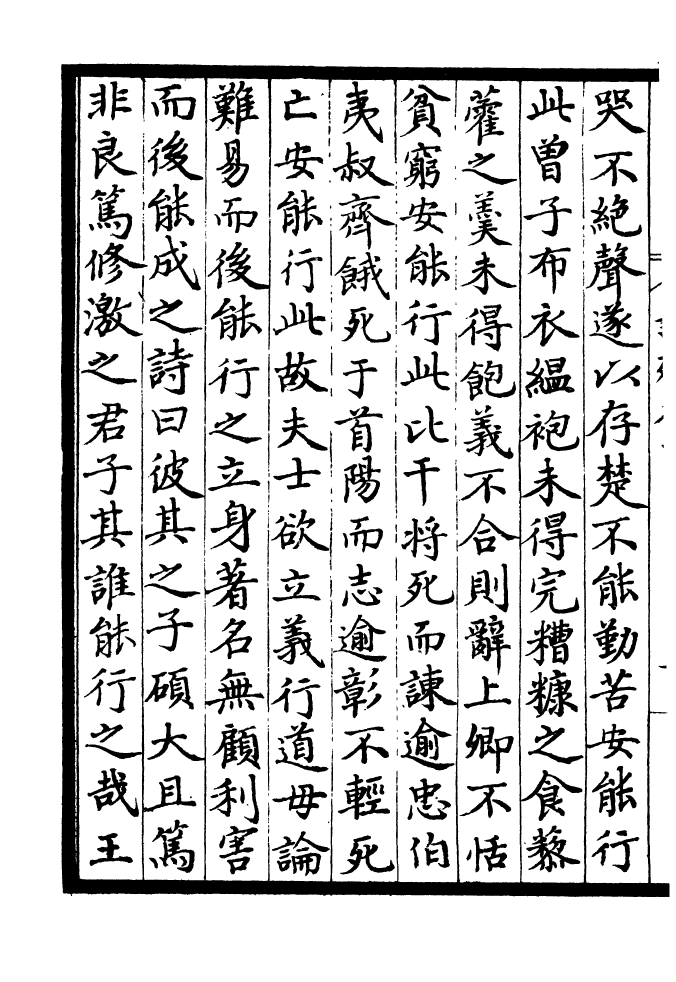 哭不絶聲遂以存楚不能勤苦安能行
此曾子布衣緼袍未得完糟糠之食藜
藿之羹未得飽義不合則辭上卿不恬
貧窮安能行此比干将死而諌逾忠伯
夷叔齊餓死于首陽而志逾彰不輕死
亡安能行此故夫士欲立義行道毋論
難易而後能行之立身著名無顧利害
而後能成之詩曰彼其之子碩大且篤
非良篤修激之君子其誰能行之哉王